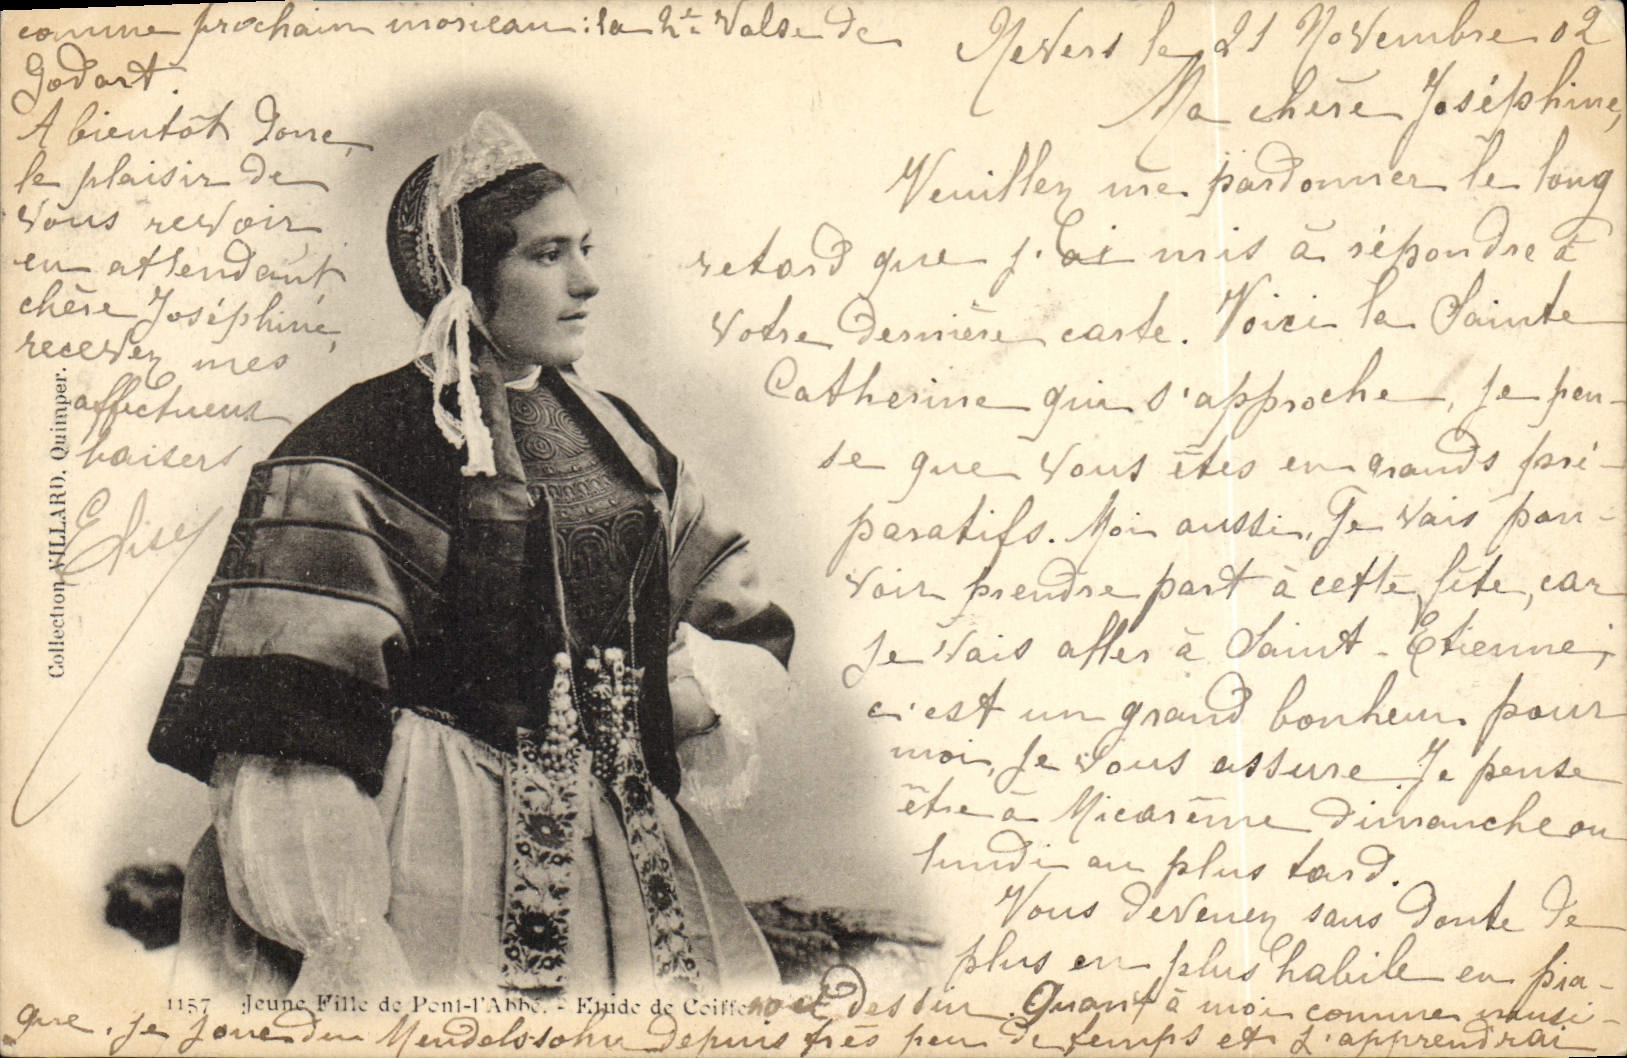 Nevers le 21 Novembre 02
Ma chère Joséphine,
Veuillez me pardonner le long
retard que j'ai mis à répondre à
votre dernière carte. Voici la Sainte
Catherine qui s'approche, je pen-
se que vous êtes en grands pré-
paratifs. Moi aussi, je vais pou-
voir prendre part à cette fête, car
je vais aller à Saint-Etienne;
c'est un grand bonheur pour
moi, je vous assure. Je pense
être à Micarême dimanche ou
lundi au plus tard.
Vous devenez sans doute de
plus en plus habile en pia-
no et dessin. Quant à moi comme musi-
que, je joue du Mendelssohn depuis très peu de temps et j'apprendrai
comme prochain morceau: la 2e Valse de
Godart.
A bientôt donc,
le plaisir de
vous revoir
en attendant,
chère Joséphine,
recevez mes
affectueux
baisers
Elise
Collection VILLARD, Quimper.
1157 Jeune Fille de Pont-l'Abbé. - Etude de Coiffe